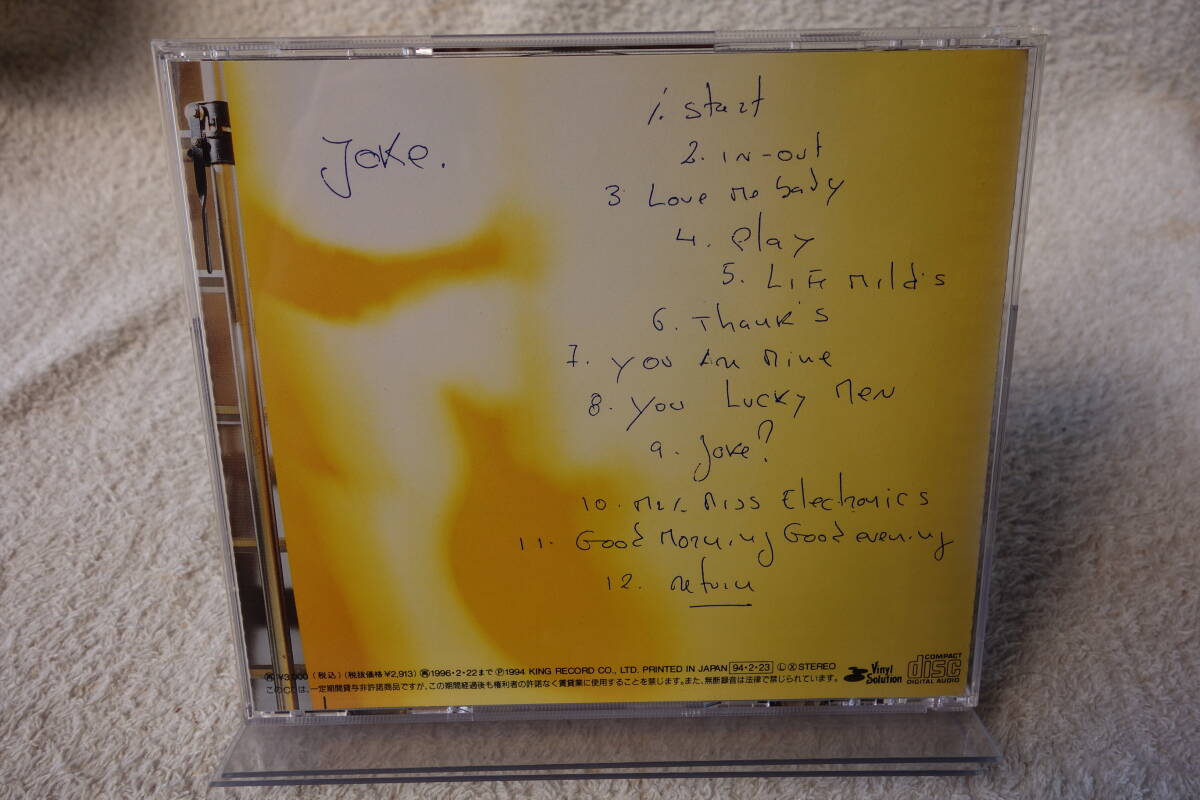 Joke.
1. Start
2. IN-out
3 Love Me baby
4. Play
5. LIFE Mild's
6. Thank's
7. You Are Mine
8. You Lucky Men
9. Joke?
10. Mr. Miss Electronics
11. Good Morning Good evening
12. Return
¥3,000(税込)(税抜価格¥2,913) 1996・2・22まで Ⓟ1994 KING RECORD CO., LTD. PRINTED IN JAPAN 94・2・23 Ⓛ Ⓧ STEREO
このCDは、一定期間貸与非許諾商品ですが、この期間経過後も権利者の許諾なく賃貸業に使用することを禁じます。また、無断録音は法律で禁じられています。
Vinyl Solution
COMPACT disc DIGITAL AUDIO